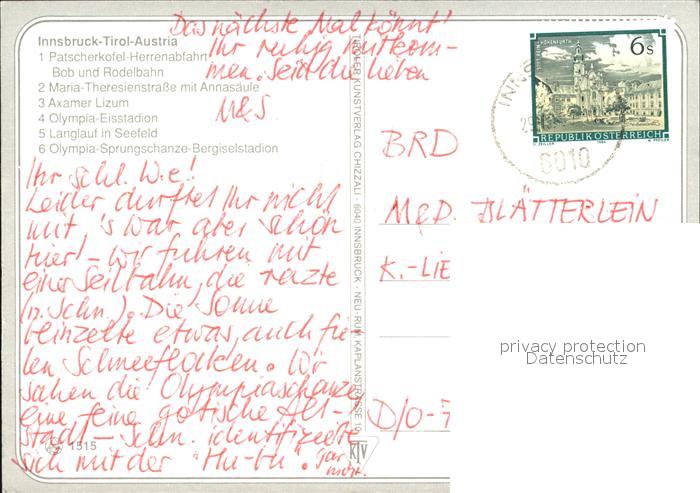 Das nächste Mal könnt
Ihr ruhig mitkom-
men. Seid die lieben
M&S
Innsbruck-Tirol-Austria
1 Patscherkofel-Herrenabfahrt
Bob und Rodelbahn
2 Maria-Theresienstraße mit Annasäule
3 Axamer Lizum
4 Olympia-Eisstadion
5 Langlauf in Seefeld
6 Olympia-Sprungschanze-Bergiselstadion
Ihr schl. W.e!
Leider durftet Ihr nicht
mit, 's war aber schön
hier! – wir fuhren mit
einer Seilbahn, die reizte
(n. Schn.). Die Sonne
blinzelte etwas, auch fie-
len Schneeflocken. Wir
sahen die Olympiaschanze,
eine feine gotische Alt-
stadt – Schn. identifizierte
sich mit der "Hu-hu".
1515
TIROLER KUNSTVERLAG CHIZZALI · 6040 INNSBRUCK - NEU-RUM, KAPLANSTRASSE 10
KTV
STIFT REIN-HOHENFURTH
6 S
REPUBLIK ÖSTERREICH
O. ZEILER 1984
6010
BRD
M&D. BLÄTTERLEIN
K.-LIE
D/O-7
privacy protection
Datenschutz